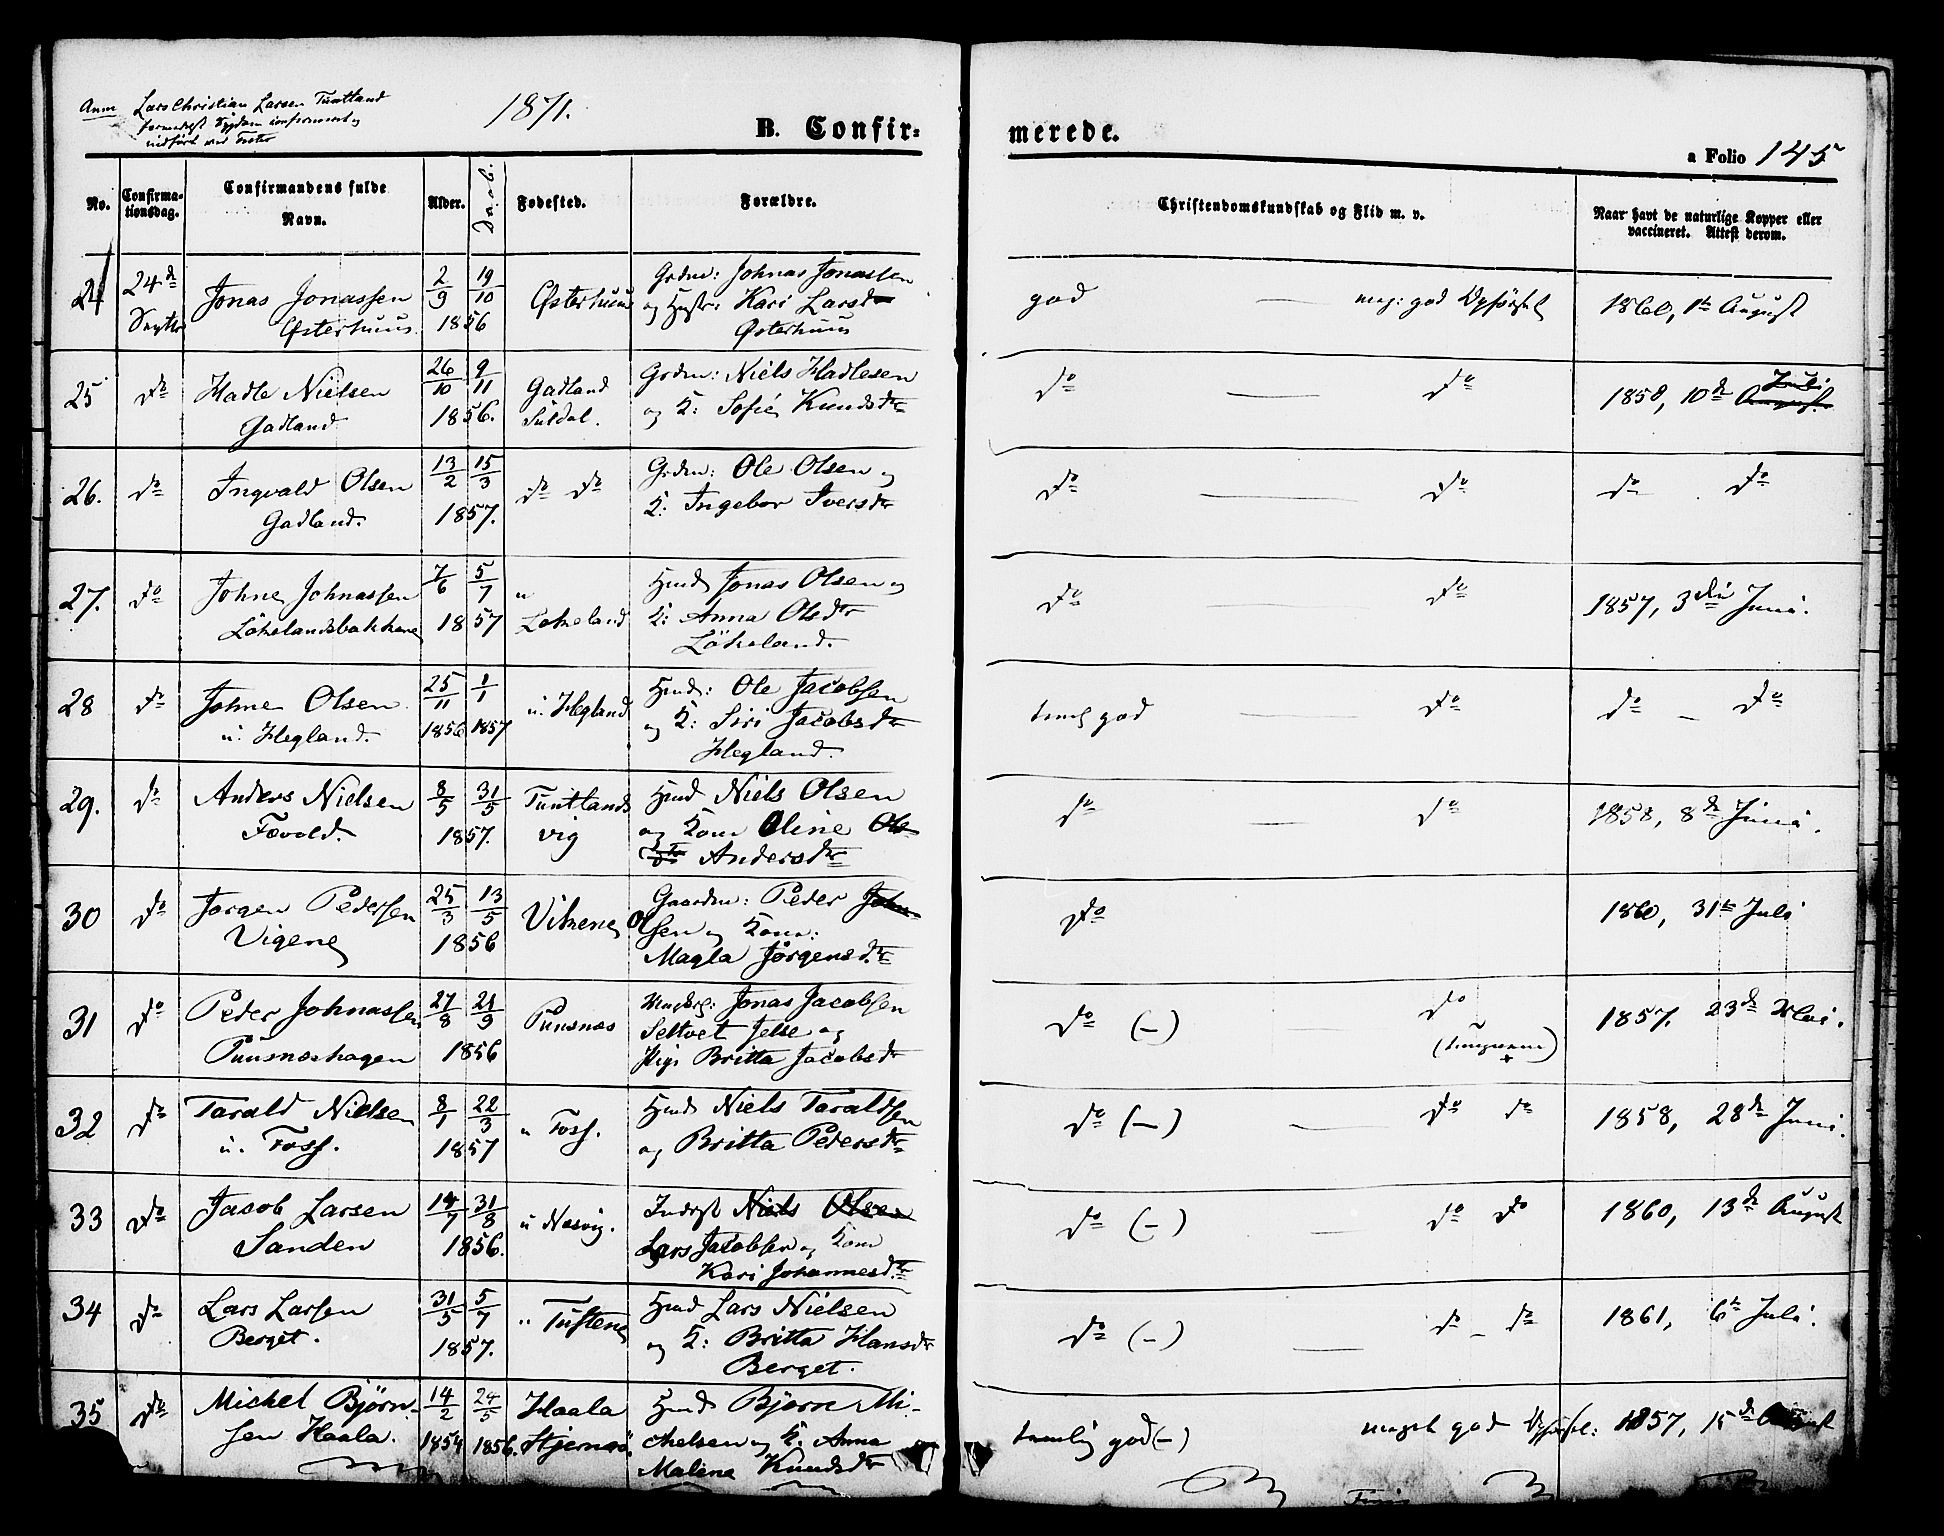 Anm Lars Christian Larsen Tuntland
formedelst Sygdom confirmeret
indført ved
1871.
B. Confir-
merede.
a Folio 145
No. Confirmationsdag. Confirmandens fulde Navn. Alder. Daab. Fødested. Forældre. Christendomskundskab og Flid m. v. Naar havt de naturlige Kopper eller vaccineret. Attest derom.
24 24de Septbr Jonas Jonassen 2/9 19/10 Østerhuus Grdm: Johnas Jonassen god — meg: god Opførsel 1860, 1te August
Østerhuus. 1856 og Hustr: Kari Larsdr
Østerhuus
25 do Hadle Nielsen 26/10 9/11 Gadland Grdm: Niels Hadlesen do — do 1858, 10de Juli
Gadland 1856. Suldal. og K: Sofie Knudsdtr August.
26. do Ingvald Olsen 13/2 15/3 do do Grdm: Ole Olsen og do — do do . do
Gadland. 1857. K: Ingebor Iversdtr
27. do Johne Johnassen 7/6 5/7 " Hmd Jonas Olsen og do — do 1857, 3die Juni.
Lökelandsbakkene 1857 Lökeland K: Anna Olsdtr
Lökeland.
28 do Johne Olsen 25/11 1/1 u. Hegland Hmd: Ole Jacobsen teml god — do do — do
u. Hegland. 1856 1857 og K: Siri Jacobsdtr
Hegland.
29. do Anders Nielsen 8/5 31/5 Tuntlands Hmd Niels Olsen do — do 1858, 8de Juni.
Fævold. 1857. vig og Kone Oline Ols
dtr Andersdtr
30 do Jørgen Pedersen 25/3 13/5 Vikene Gaardm: Peder John- do 1860, 31te Juli
Vigene 1856 Olsen og Kone:
Magla Jørgensdtr
31 do Peder Johnassen 27/8 21/9 Puusnæs Ungkrl: Jonas Jacobsen do (—) — do 1857. 23de Mai.
Puusnæshagen 1856 Seltvet Jelse og
Pige Britta Jacobsdtr
32 do Tarald Nielsen 8/1 22/3 " Foss. Hmd Niels Taraldsen do (—) — do do 1858, 28de Juni.
u. Foss. 1857 og Britta Pedersdtr
33 do Jacob Larsen 14/7 31/8 u Næsvig. Inderst Niels Olsen do (—) — do do 1860, 13de August
Sanden 1856. Lars Jacobsen og Kone
Kari Johannesdtr
34 do Lars Larsen 31/5 5/7 " Tuftene Hmd Lars Nielsen do (—) — do — do 1861, 6te Juli.
Berget. 1857. og K: Britta Hansdtr
Berget.
35 do Michel Björn- 14/2 24/5 Haala Hmd Bjørn Mi- temlig god (—) meget god Opførsel: 1857, 15de August
sen Haala. 1854 1856. Hjernæs. chelsen og K. Anna
Malene Knudsdtr